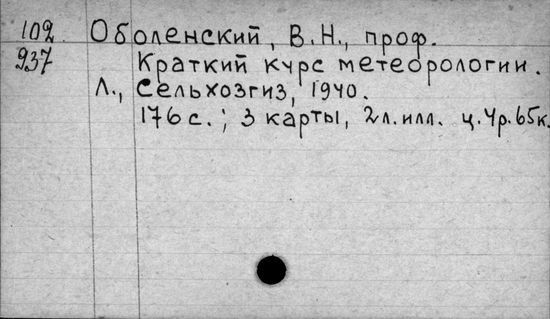 102 Оболенский, В.Н., проф.
937 Краткий курс метеорологии.
Л., Сельхозгиз, 1940.
176 с.; 3 карты, 2 л. илл. ц. 4 р. 65 к.